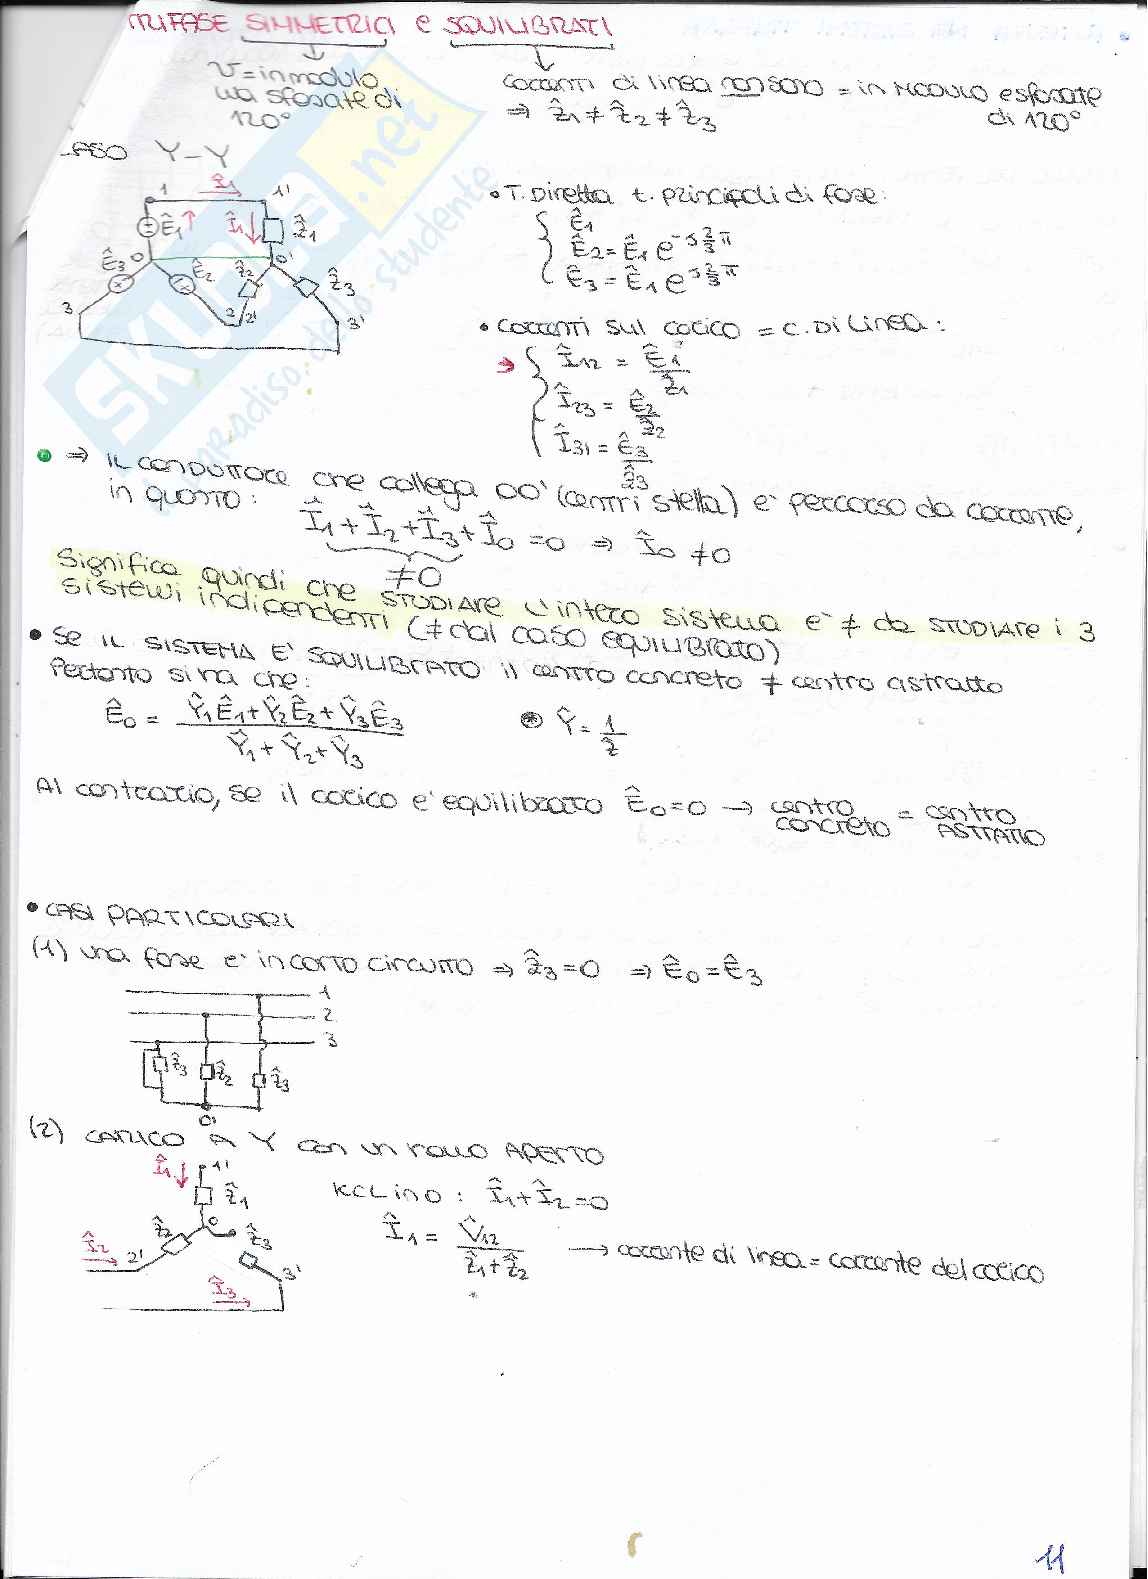 TRIFASE SIMMETRICI e SQUILIBRATI
V = in modulo
ma sfasate di
120°
Correnti di linea non sono = in modulo e sfasate
di 120°
⇒ Ẑ1 ≠ Ẑ2 ≠ Ẑ3
CASO Y-Y
1 Î1 1'
Ê1 Î1 Ẑ1
Ê3 0 Ê2 Ẑ2 0' Ẑ3
3 2 2' 3'
• T. Diretta t. principali di fase:
Ê1
Ê2 = Ê1 e^-J 2/3 π
Ê3 = Ê1 e^J 2/3 π
• Correnti sul carico = C. Di Linea:
→ Î12 = Ê1/Ẑ1
Î23 = Ê2/Ẑ2
Î31 = Ê3/Ẑ3
⇒ IL CONDUTTORE che collega 00' (centri stella) e' percorso da corrente,
in quanto:
Î1 + Î2 + Î3 + Î0 = 0 ⇒ Î0 ≠ 0
≠ 0
Significa quindi che STUDIARE l'intero sistema e' ≠ da STUDIARE i 3
sistemi indipendenti (≠ dal caso EQUILIBRATO)
• Se IL SISTEMA E' SQUILIBRATO il centro concreto ≠ centro astratto
Pertanto si ha che:
Ê0 = Ŷ1Ê1 + Ŷ2Ê2 + Ŷ3Ê3 / Ŷ1 + Ŷ2 + Ŷ3
⊛ Ŷ = 1/Z
Al contrario, se il carico e' equilibrato Ê0 = 0 → centro concreto = centro ASTRATTO
• CASI PARTICOLARI
(1) una fase e' in corto circuito ⇒ Ẑ3 = 0 ⇒ Ê0 = Ê3
1
2
3
Ẑ3 Ẑ2 Ẑ3
0'
(2) CARICO A Y con un ramo APERTO
Î1 1'
Ẑ1
Ẑ2 0 Ẑ3
Î2 2'
3'
Î3
KCL in 0: Î1 + Î2 = 0
Î1 = V̂12 / Ẑ1 + Ẑ2 → corrente di linea = corrente del carico
11
SKUOLA.net
il paradiso dello studente